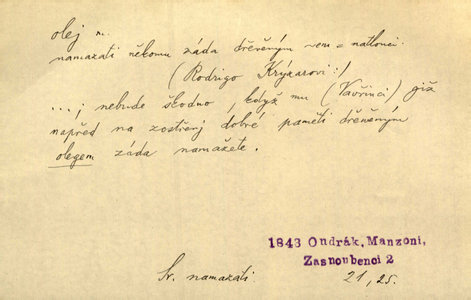 olej m.
namazati někomu záda dřevěným oem = natlouci:
(Rodrigo Krysarovi:)
...; nebude škodno, když mu (Vavřinci) již
napřed na zostřený dobré paměti dřevěným
olegem záda namažete.
1843 Ondrák, Manzoni,
Zasnoubenci 2
Sv. namazati
21, 25.